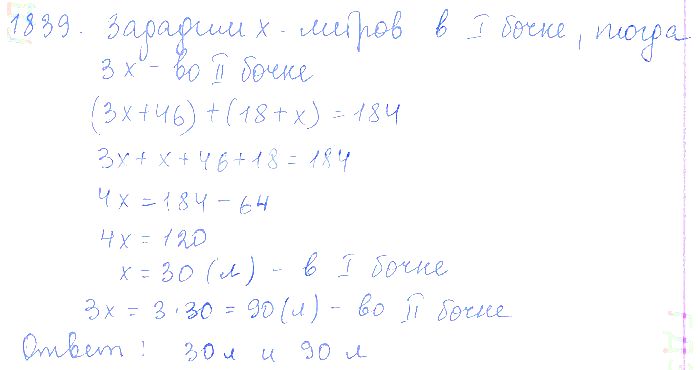 1839. Зададим x - литров в I бочке, тогда
3x - во II бочке
(3x+46)+(18+x)=184
3x+x+46+18=184
4x=184-64
4x=120
x=30 (л) - в I бочке
3x=3·30=90(л) - во II бочке
Ответ: 30л и 90 л